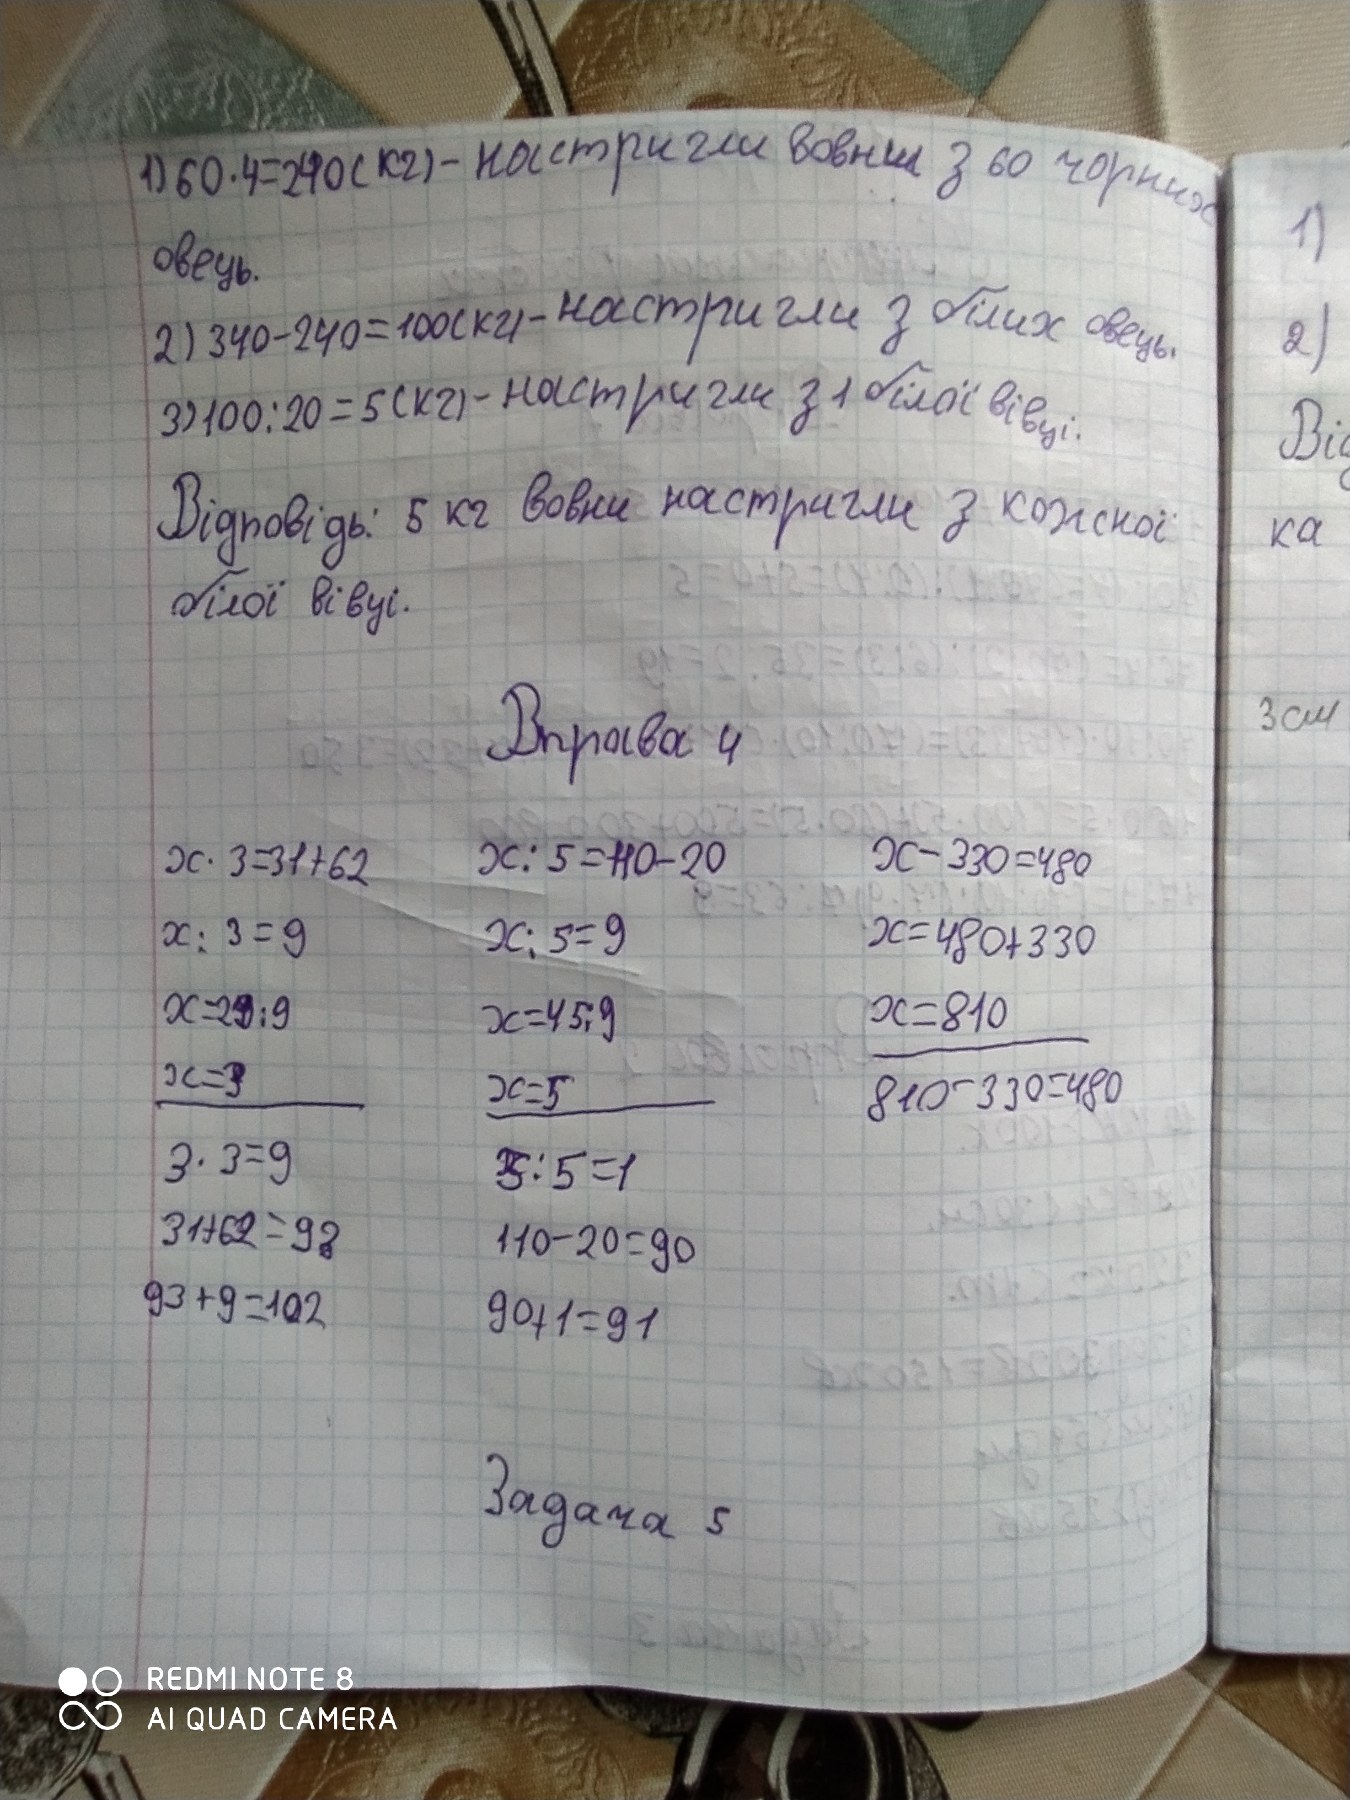 1) 60·4=240(кг)- настригли вовни з 60 чорних
овець.
2) 340-240=100(кг)- настригли з білих овець.
3) 100:20=5(кг)- настригли з 1 білої вівці.
Відповідь: 5 кг вовни настригли з кожної
білої вівці.
Вправа 4
х· 3=31+62
х: 3=9
х=29:9
х=3
3· 3=9
31+62=93
93+9=102
х: 5=110-20
х: 5=9
х=45:9
х=5
5:5=1
110-20=90
90+1=91
х-330=480
х=480+330
х=810
810-330=480
Задача 5
1)
2)
Від
ка
3см
REDMI NOTE 8
AI QUAD CAMERA